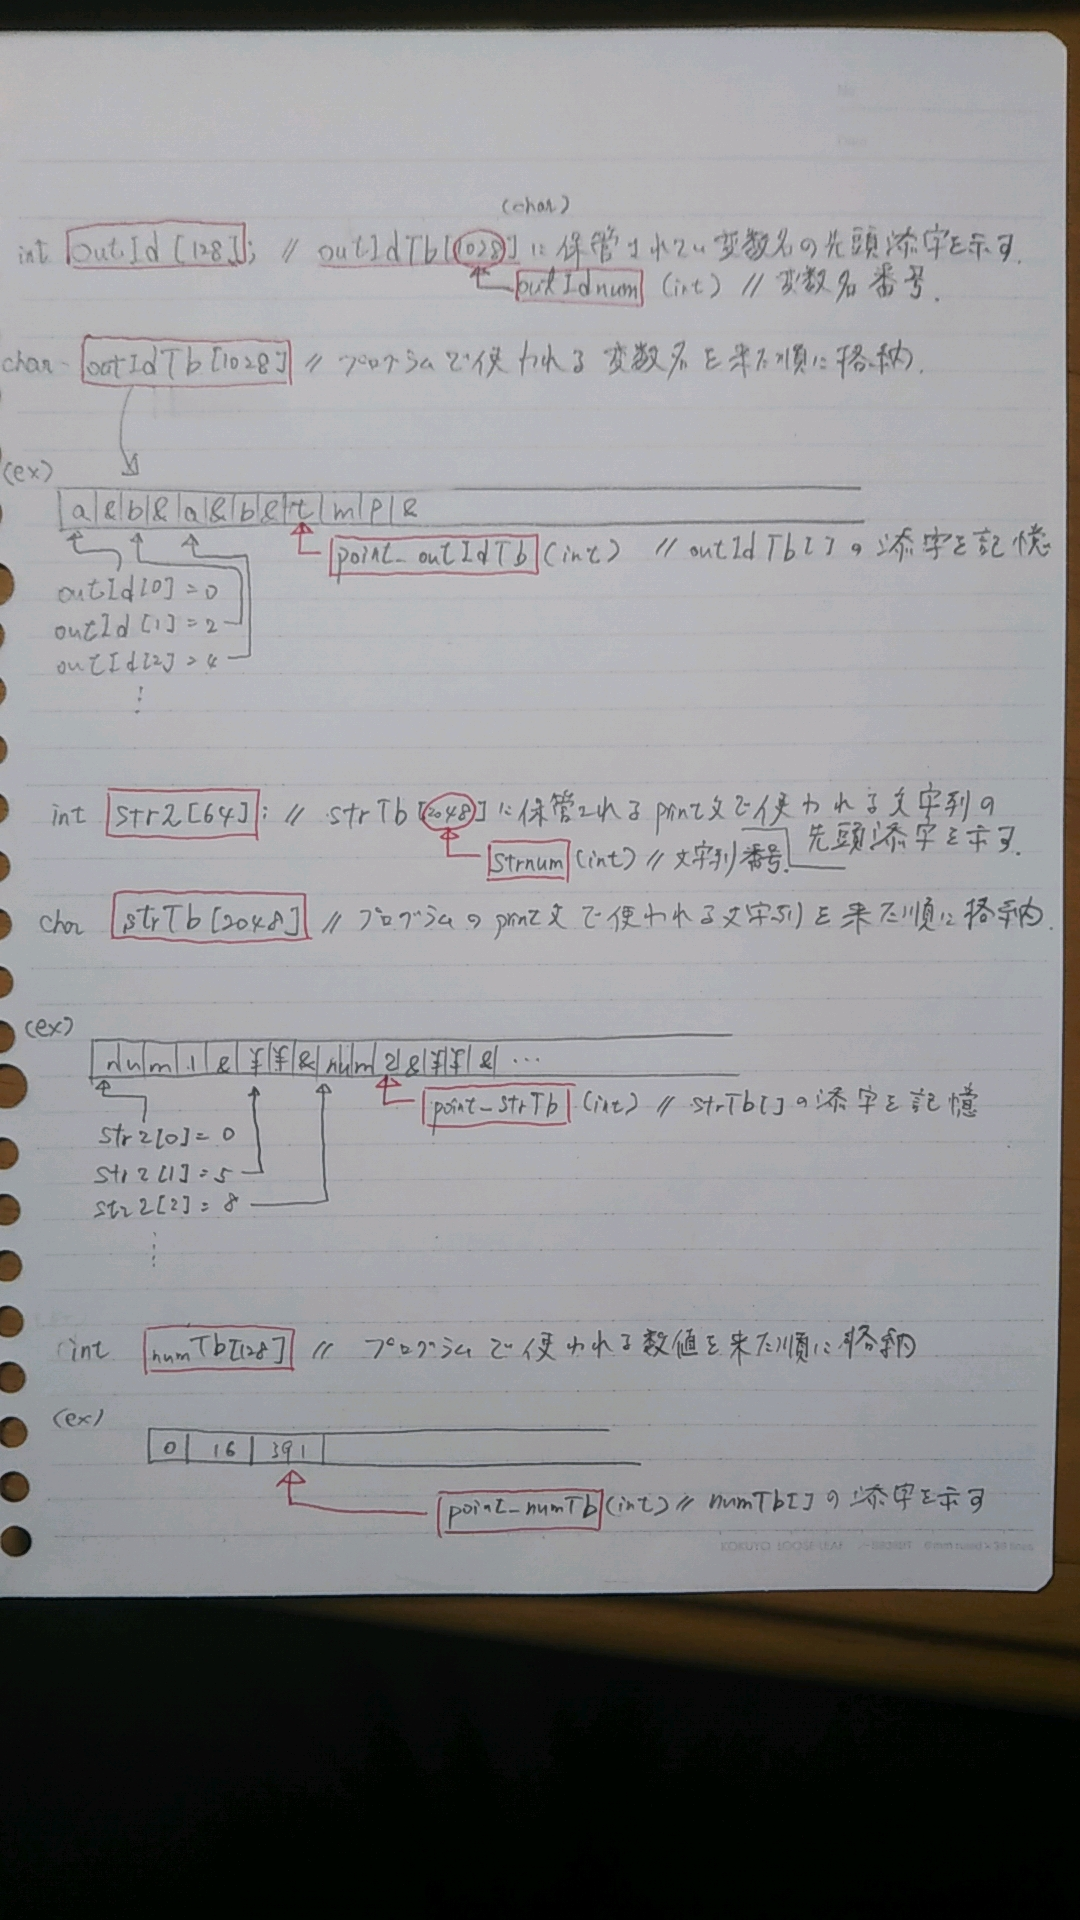 (char)
int outId[128]; // outIdTb[1028]に保管されてい変数名の先頭添字を示す.
outIdnum (int) // 変数名番号.
char outIdTb[1028] // プログラムで使われる変数名を来た順に格納.
(ex)
a|&|b|&|a|&|b|&|t|m|p|&
point_outIdTb (int) // outIdTb[]の添字を記憶
outId[0]=0
outId[1]=2
outId[2]=4
⋮
int str2[64]; // strTb[2048]に保管される print文で使われる文字列の
先頭添字を示す.
strnum (int) // 文字列番号.
char strTb[2048] // プログラムの print文で使われる文字列を来た順に格納.
(ex)
n|u|m|1|&|¥|¥|&|n|u|m|2|&|¥|¥|&| ...
point_strTb (int) // strTb[]の添字を記憶
str2[0]=0
str2[1]=5
str2[2]=8
⋮
int numTb[128] // プログラムで使われる数値を来た順に格納
(ex)
0|16|391|
point_numTb (int) // numTb[]の添字を示す